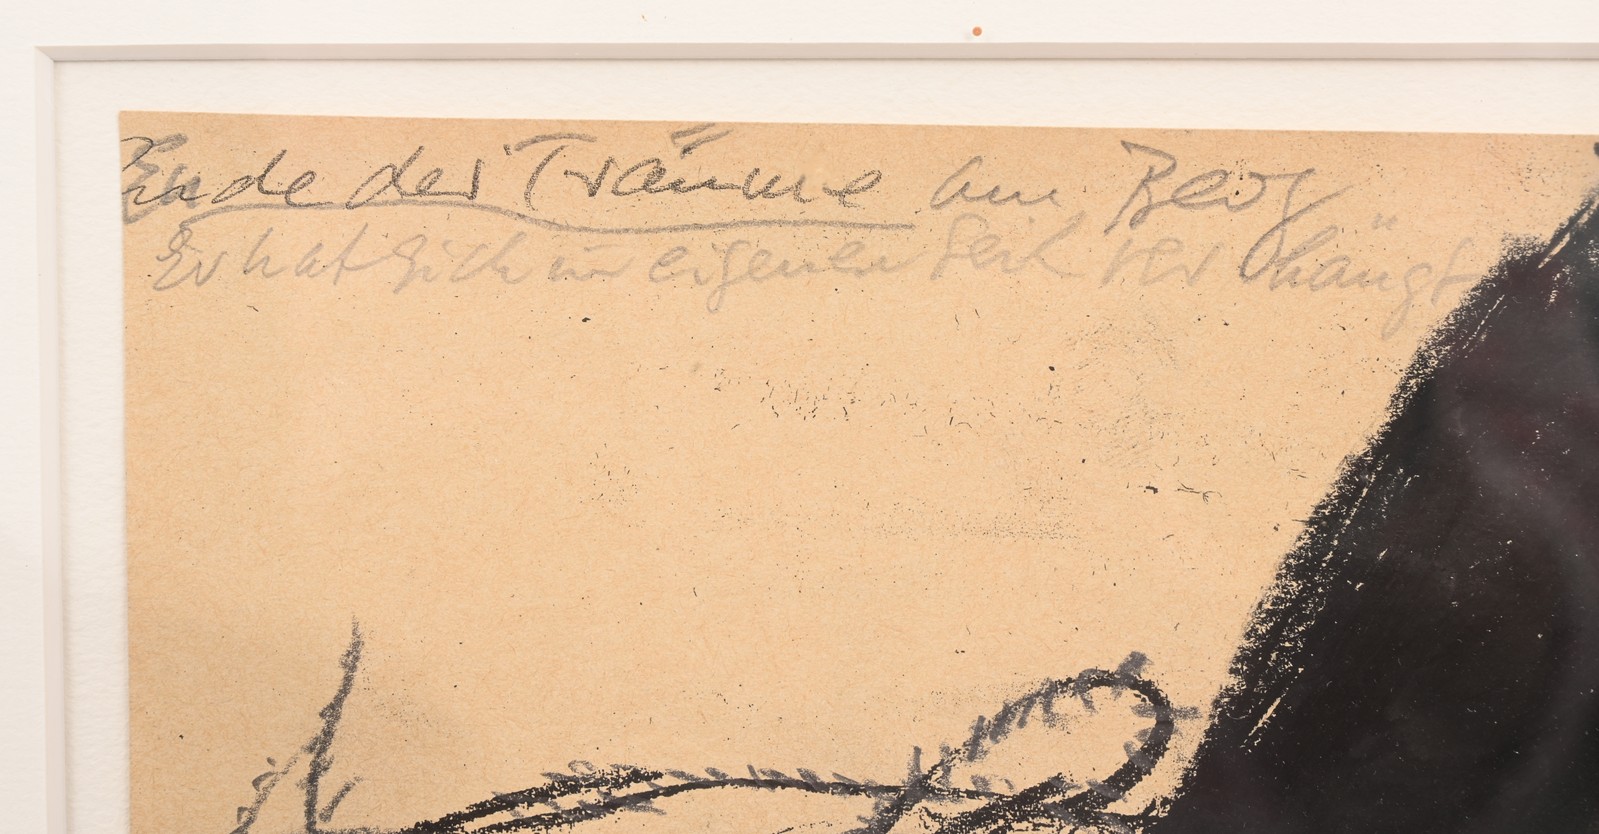 Ende der Träume am Berg
Er hat sich im eigenen Seil ver hängt